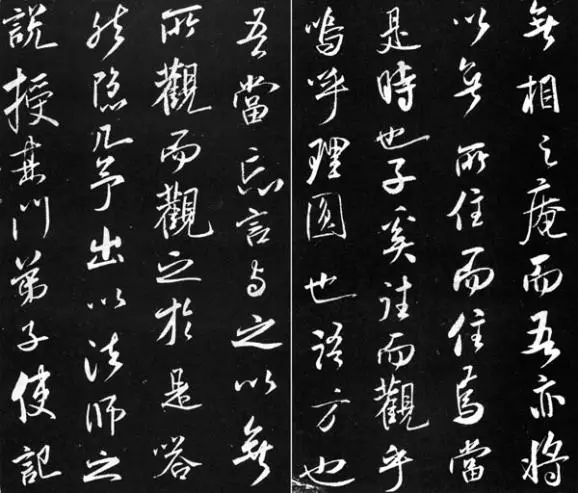 無相之庵而吾亦將
以無所住而住焉當
是時也子奚往而觀乎
嗚呼理圓也語方也
吾當忘言与之以無
所觀而觀之於是嗒
然隱几予出以法師之
說授其門弟子使記